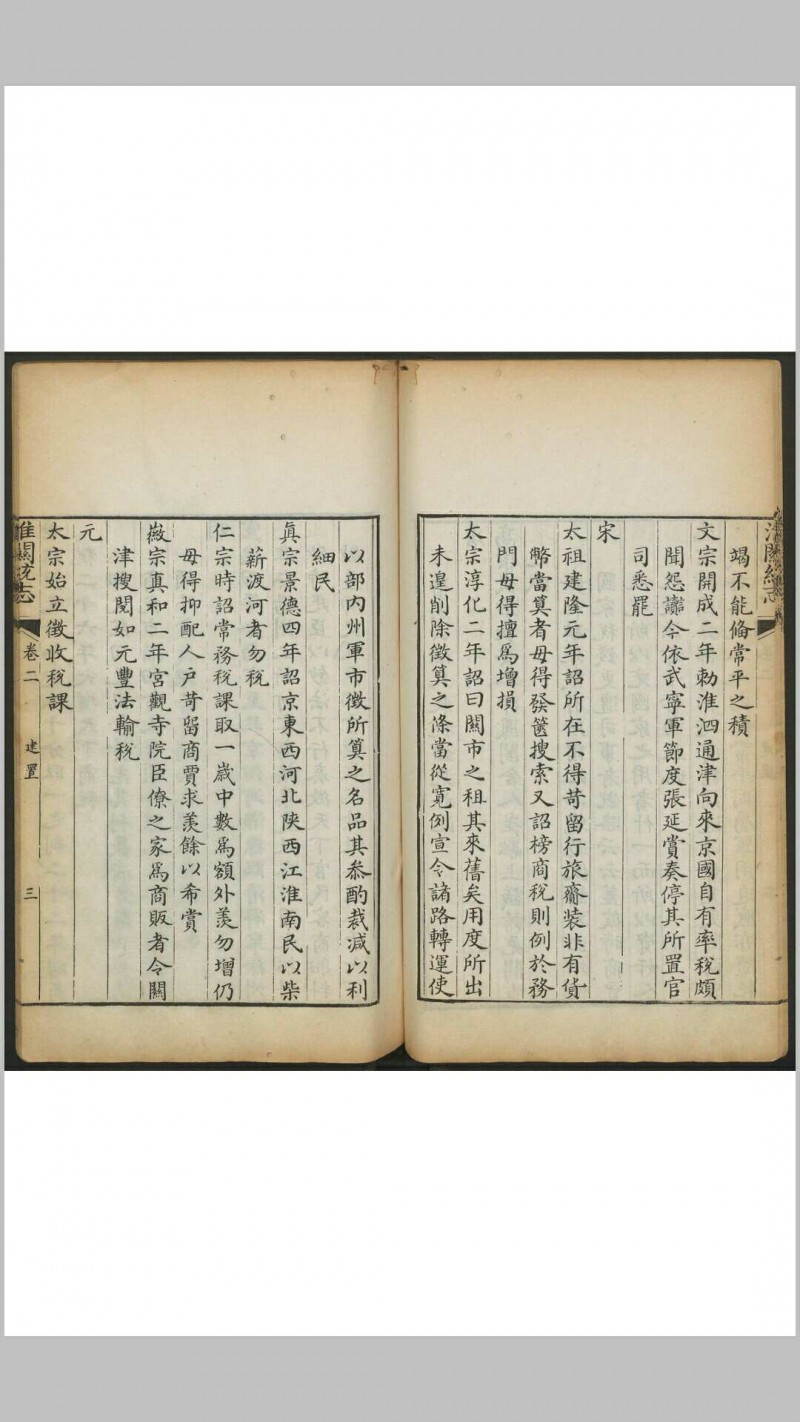 竭不能偹常平之積
文宗開成二年勅淮泗通津向來京國自有率稅頗
聞怨讟今依武寧軍節度張延賞奏停其所置官
司悉罷
宋
太祖建隆元年詔所在不得苛留行旅齎装非有貨
幣當筭者毋得發篋搜索又詔榜商稅則例於務
門毋得擅爲增損
太宗淳化二年詔曰關市之租其來舊矣用度所出
未遑削除徵筭之條當從寛例宣令諸路轉運使
以部内州軍市徵所筭之名品其叅酌裁減以利
細民
眞宗景德四年詔京東西河北陜西江淮南民以柴
薪渡河者勿稅
仁宗時詔常務稅課取一歲中數爲額外羡勿增仍
毋得抑配人户苛留商賈求羡餘以希賞
徽宗真和二年宮觀寺院臣僚之家爲商販者令關
津搜閱如元豐法輸稅
元
太宗始立徵收稅課
淮關統志
卷二
建置
三